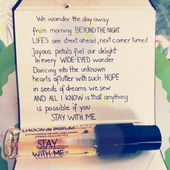 We wonder the day away
from morning BEYOND THE NIGHT
LIFE'S one street ahead, next corner turned
Joyous petals fuel our delight
In every WIDE EYED wonder
Dancing into the unknown
hearts aflutter with such HOPE
in seeds of dreams we sew
AND ALL I know is that anything
is possible if you
STAY WITH ME
LIAISON de PARFUM
STAY
WITH ME